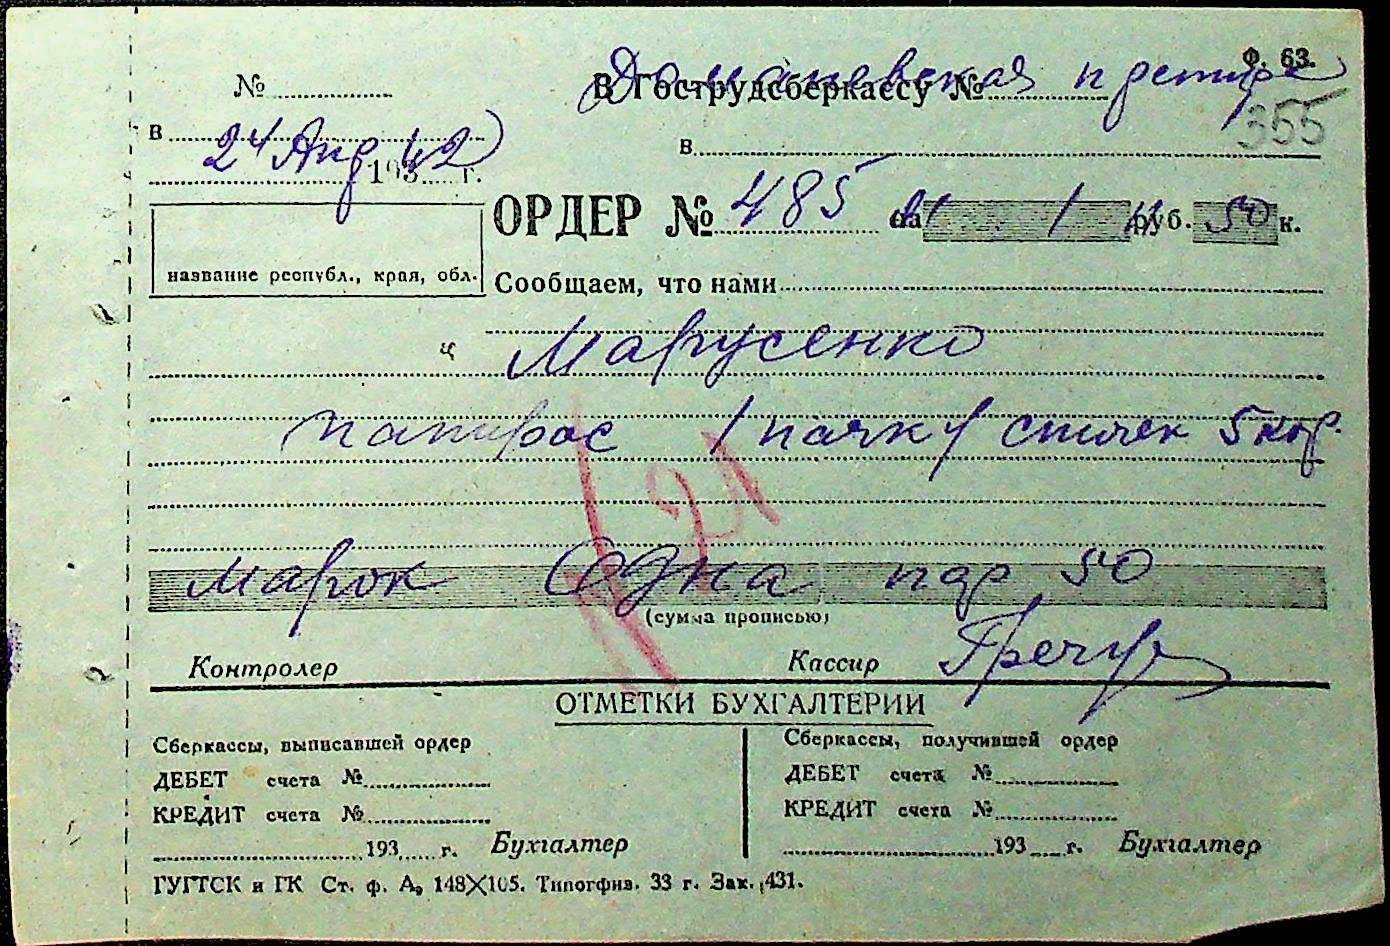 Ф. 63.
№
В Гострудсберкассу №
355
в
24 Апр 42
193 г.
в
ОРДЕР № 485 на 1 руб. 50 к.
название республ., края, обл.
Сообщаем, что нами
Марусенко
папирос 1 пачку спичек 5 кор.
21
марок Одна пар 50
(сумма прописью)
Контролер
Кассир
ОТМЕТКИ БУХГАЛТЕРИИ
Сберкассы, выписавшей ордер
ДЕБЕТ счета №
КРЕДИТ счета №
193 г. Бухгалтер
Сберкассы, получившей ордер
ДЕБЕТ счета №
КРЕДИТ счета №
193 г. Бухгалтер
ГУГТСК и ГК Ст. ф. А, 148×105. Типогфив. 33 г. Зак. 431.